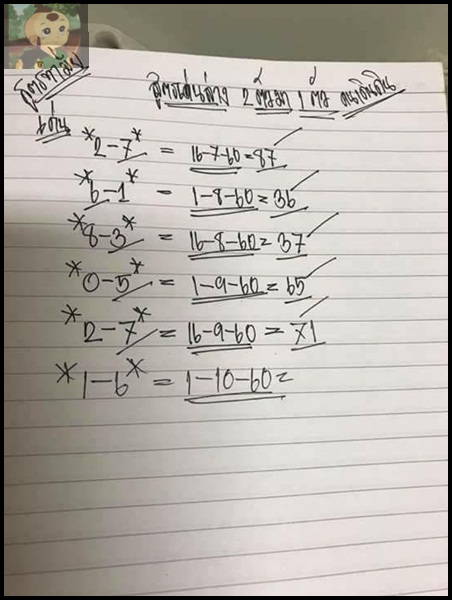 สูตรเด่นล่าง 2 ตัวมา 1 ตัว คนเดินดิน
เด่น
*2-7* = 16-7-60=87
*6-1* = 1-8-60=36
*8-3* = 16-8-60=37
*0-5* = 1-9-60=65
*2-7* = 16-9-60=71
*1-6* = 1-10-60=